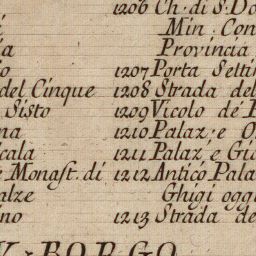 1206 Ch. di S. Do
Min. Con
Provincia
1207 Porta Setti
del Cinque 1208 Strada del
Sisto 1209 Vicolo de
na 1210 Palaz. e O
cala 1211 Palaz. e Gi
Monast. di 1212 Antico Pala
alze Ghigi oggi
no 1213 Strada de
BORGO